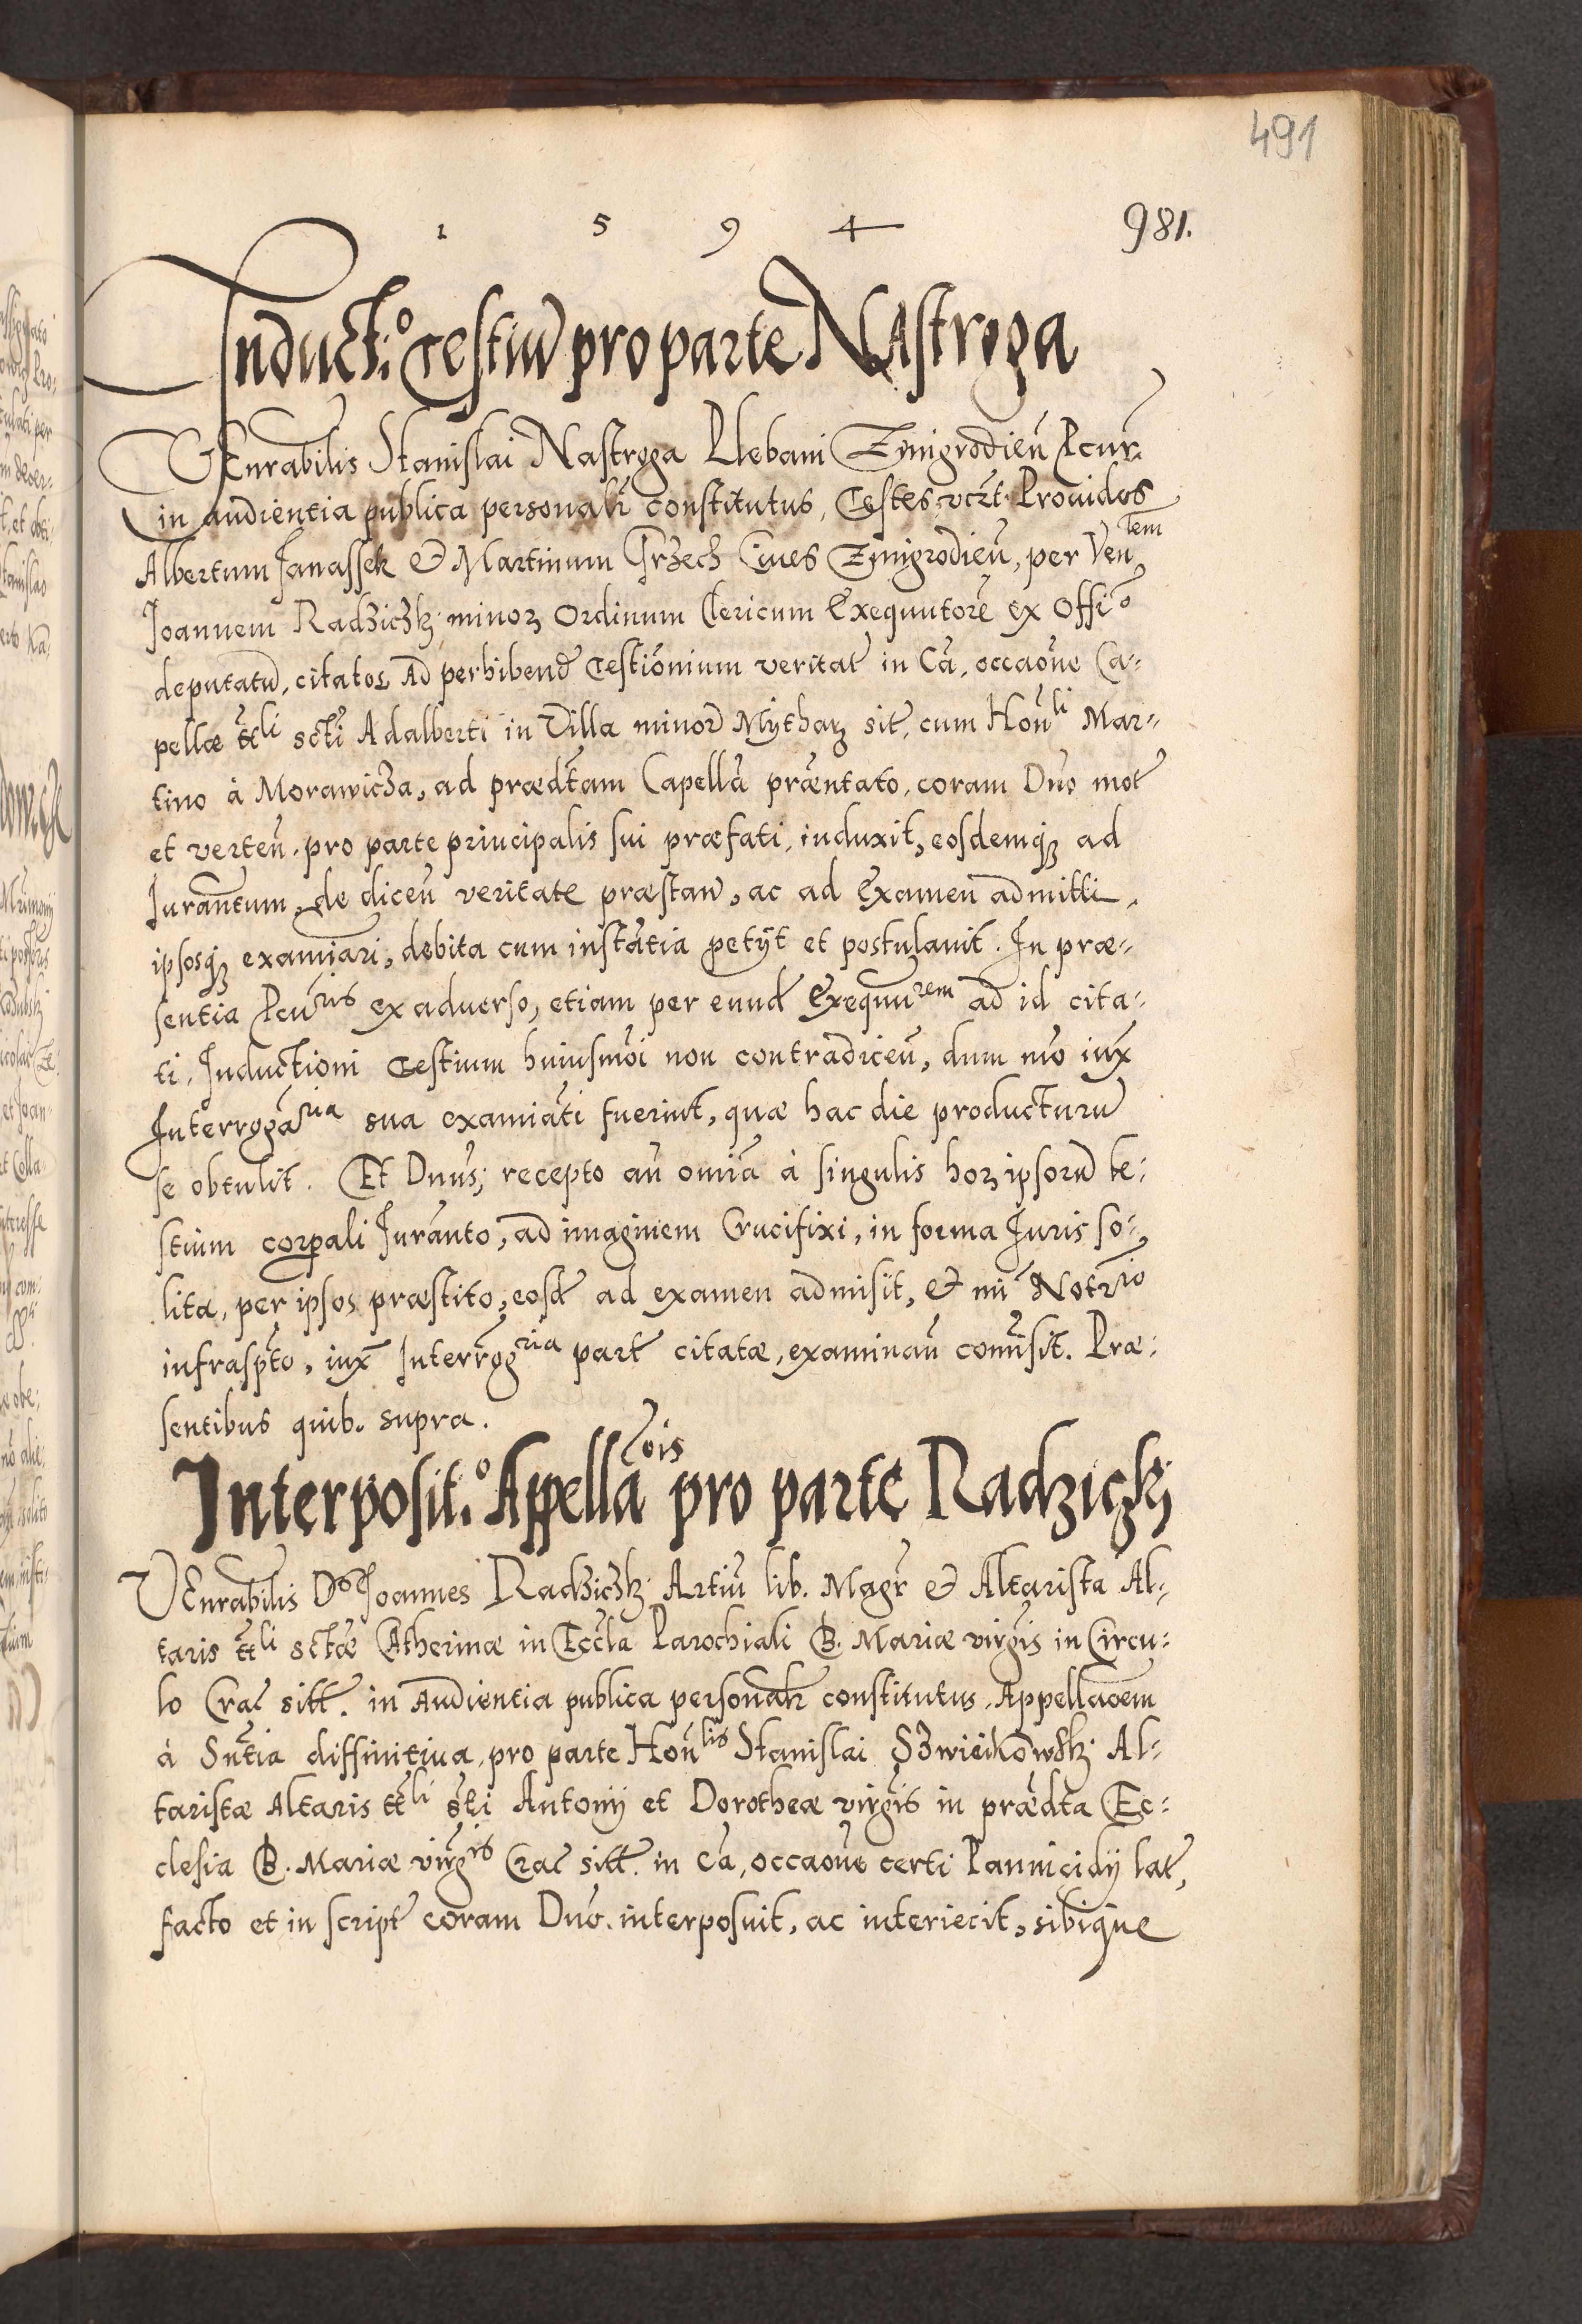 491
1 5 9 4 981.
Inducti.º testiū pro parte NAstroga
VEnrabilis Stanislai Nastroga Plebani Zmigrodieñ Pcur̃
in audientia publica personalr̃ constitutus, Testes vczt. Prouidos
Albertum Janassek & Martinum Grzech Ciues Zmigrodieñ, per Venᵗᵉᵐ
Joannem Radziczkj minorꝫ Ordinum Clericum Exequutorē ex Offiº
deputatū, citatos Ad perhibend̄ Testiōnium veritat̄ in Cā, occaōne Ca-
pellæ tt̄ˡⁱ scti Adalberti in Villa minor̄ Mytharꝫ sit̄, cum Hon̄ˡⁱ Mar-
tino à Morawicza, ad prædt̄am Capellā præntato, coram Dn̄o mot̄
et verteñ. pro parte principalis sui præfati, induxit, eosdemqꝫ ad
Iurañtum, de diceñ veritate præstan̄, ac ad Examen admitti,
ipsosqꝫ examiāri, debita cum instātia petÿt et postulauit. In præ-
sentia Pcuʳⁱˢ ex aduerso, etiam per eund̄ Exequuʳᵉᵐ ad id cita-
ti, Inductioni Testium huiusmōi non contradiceñ, dum mō iux̄
Interrogāʳⁱᵃ sua examiāti fuerint, quæ hac die producturū
se obtulit. Et Dn̄us, recepto añ omīa à singulis horꝫ ipsorū te-
stium corꝑali Jurānto, ad imaginem Crucifixi, in forma Juris so-
lita, per ipsos præstito, eosd̄ ad examen admisit, & mī Notrⁱᵒ
infraspt̄o, iux̄ Interrogʳⁱᵃ part̄ citatæ, examinañ comīsit. Præ-
sentibus quib. supra.
Interposit.º Appellāōis pro parte Radziczkj
VEnrabilis Dⁿˢ Joannes Radziczkj Artiū lib. Magr̄ & Altarista Al-
taris tt̄ˡⁱ sctæ Catherinæ in Eccl̄a Parochiali B. Mariæ virgīs in Circu-
lo Crac̄ sitt̄. in Audientia publica personalr̄ constitutus, Appellacōem
à Snt̄ia diffinitiua, pro parte Hon̄ˡⁱˢ Stanislai Szwieikowskj Al-
taristæ Altaris tt̄ˡⁱ sti Antonij et Dorotheæ virgīs in prædt̄a Ec-
clesia B. Mariæ virgⁱˢ Crac̄ sitt̄. in Cā, occaōne certi Pannicidij lat̄,
facto et in script̄ coram Dn̄o. interposuit, ac interiecit, sibique